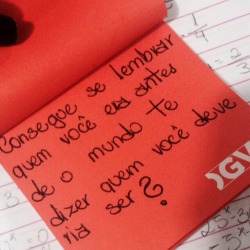 Consegue se lembrar
quem você era antes
de o mundo te
dizer quem você deve
ria ser?
IGV
1
4